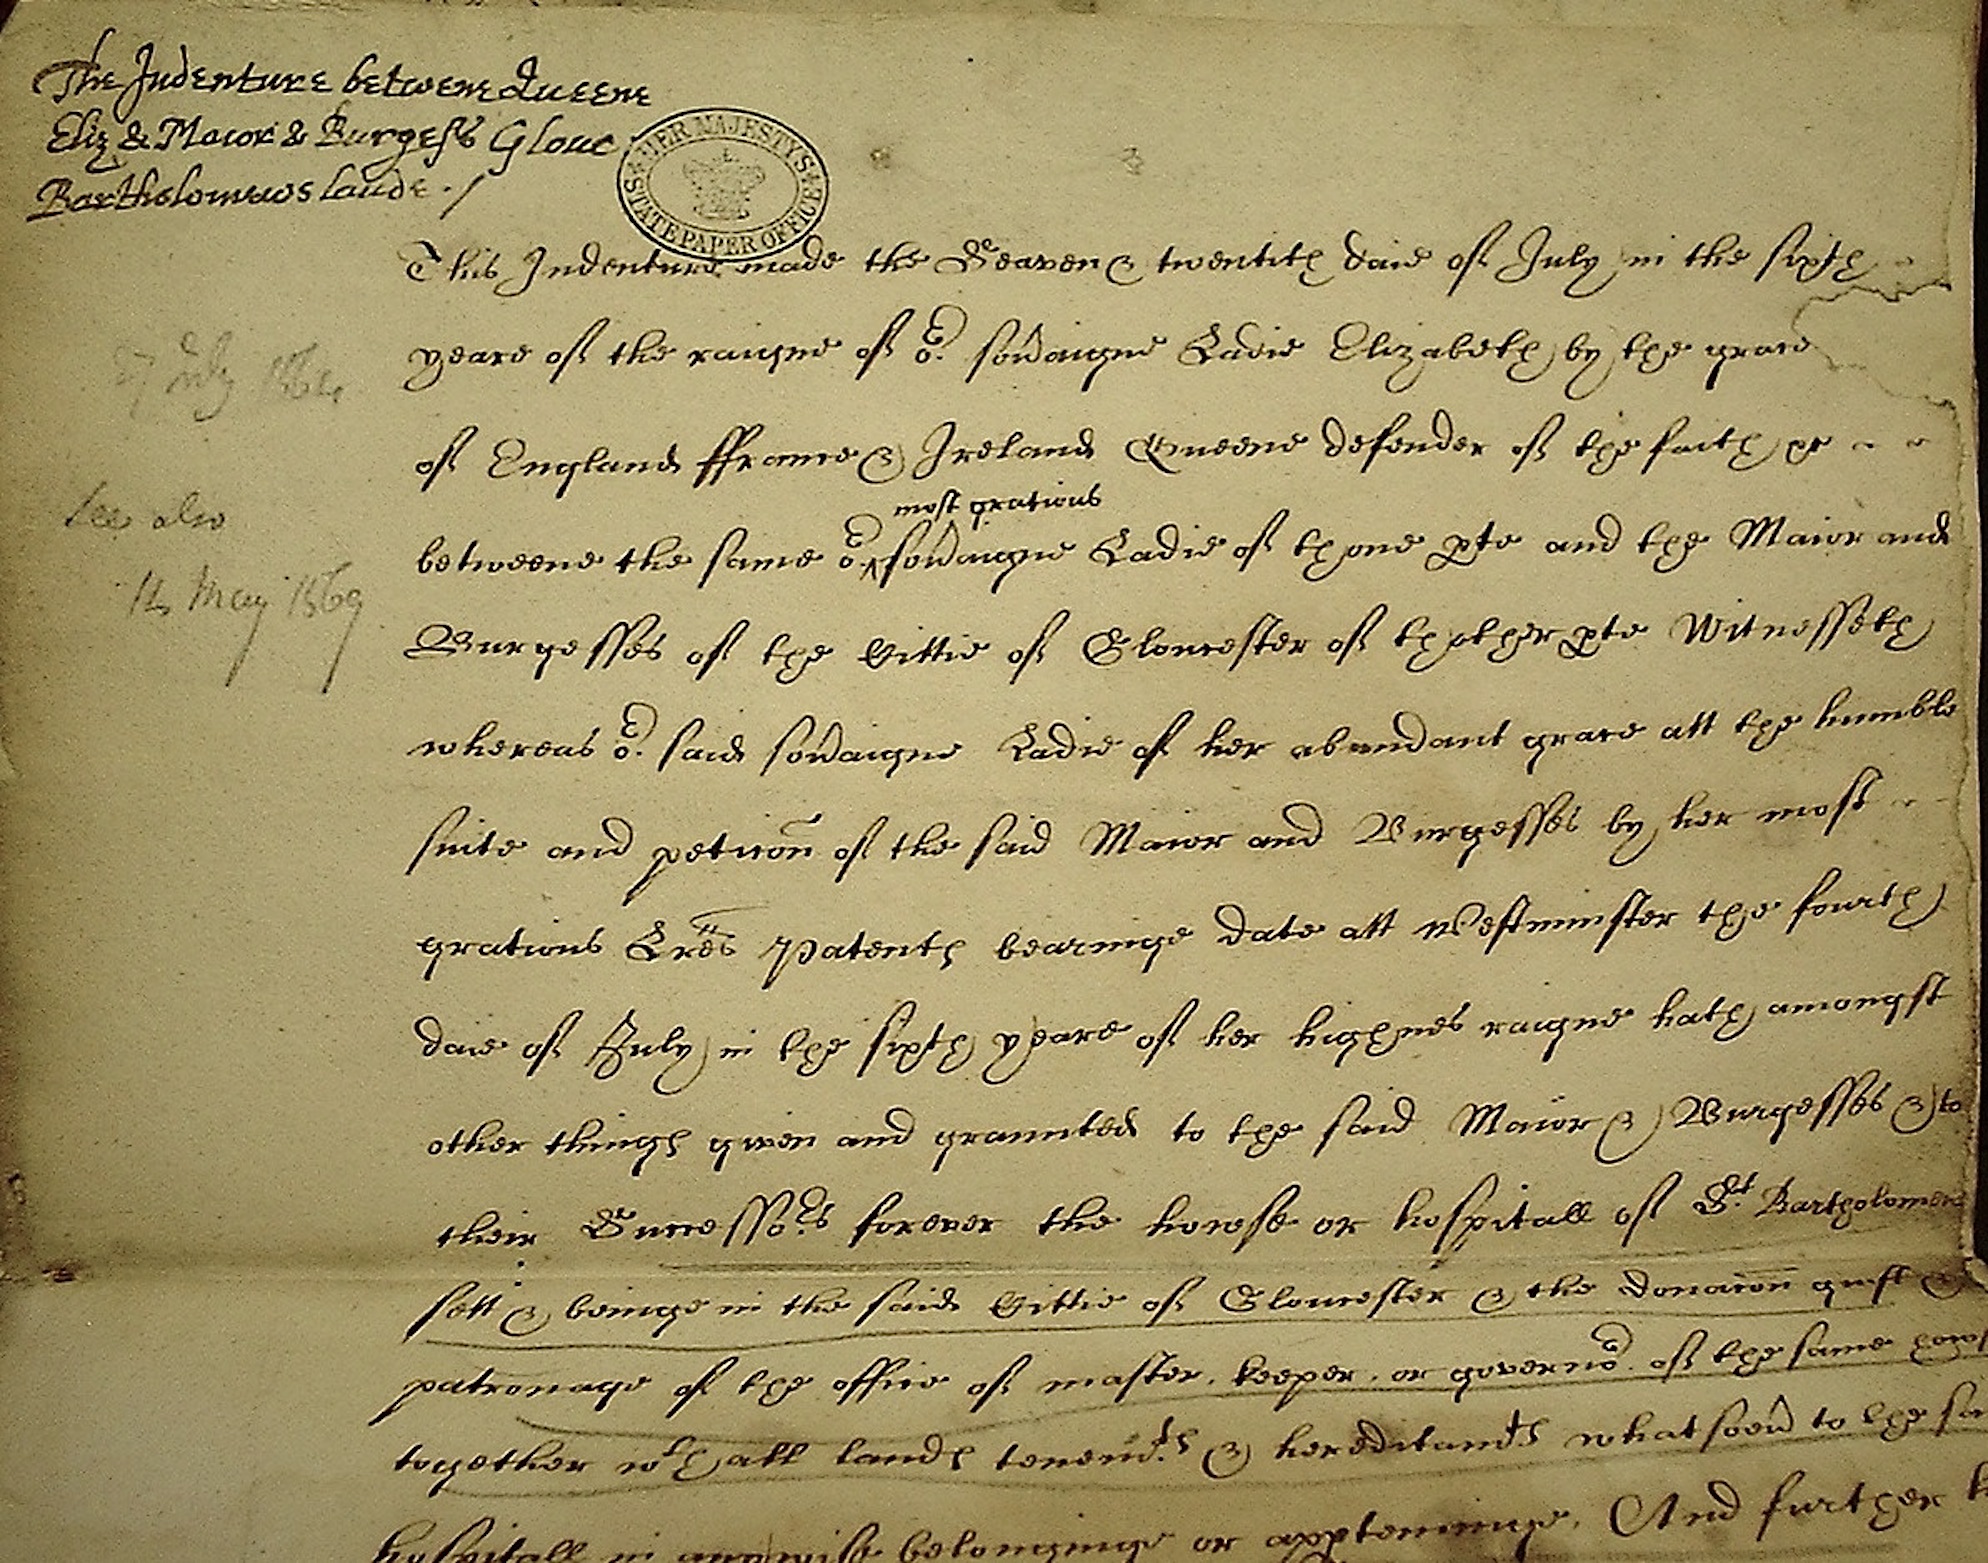 The Indenture betwene Queene
Eliz & Maior & Burgess Glouc
Bartholomews lande ./
HER MAJESTY'S STATE PAPER OFFICE
This Indenture made the Seaven & twentith daie of July in the sixth
yeare of the raigne of or soveraigne Ladie Elizabeth by the grace
27 July 1564
of England ffrance & Ireland Queene defender of the faith &c
most gratious
see also
betweene the same or ^ soveraigne Ladie of thone pte and the Maior and
14 May 1569
Burgesses of the Cittie of Gloucester of thother pte Witnesseth
whereas or said soveraigne Ladie of her abundant grace att the humble
suite and peticon of the said Maior and Burgesses by her most
gratious Lres Patents bearinge date att Westminster the fourth
daie of July in the sixth yeare of her highnes raigne hath amongst
other things given and graunted to the said Maior & Burgesses & to
their Successors forever the howse or hospitall of St Bartholomews
sett & beinge in the said Cittie of Gloucester & the donacon guift &
patronage of the office of master, keeper, or governor of the same hows
together wth all lands tenemts & hereditamts whatsoever to the sa
hospitall in anywise belonginge or apptayninge. And further